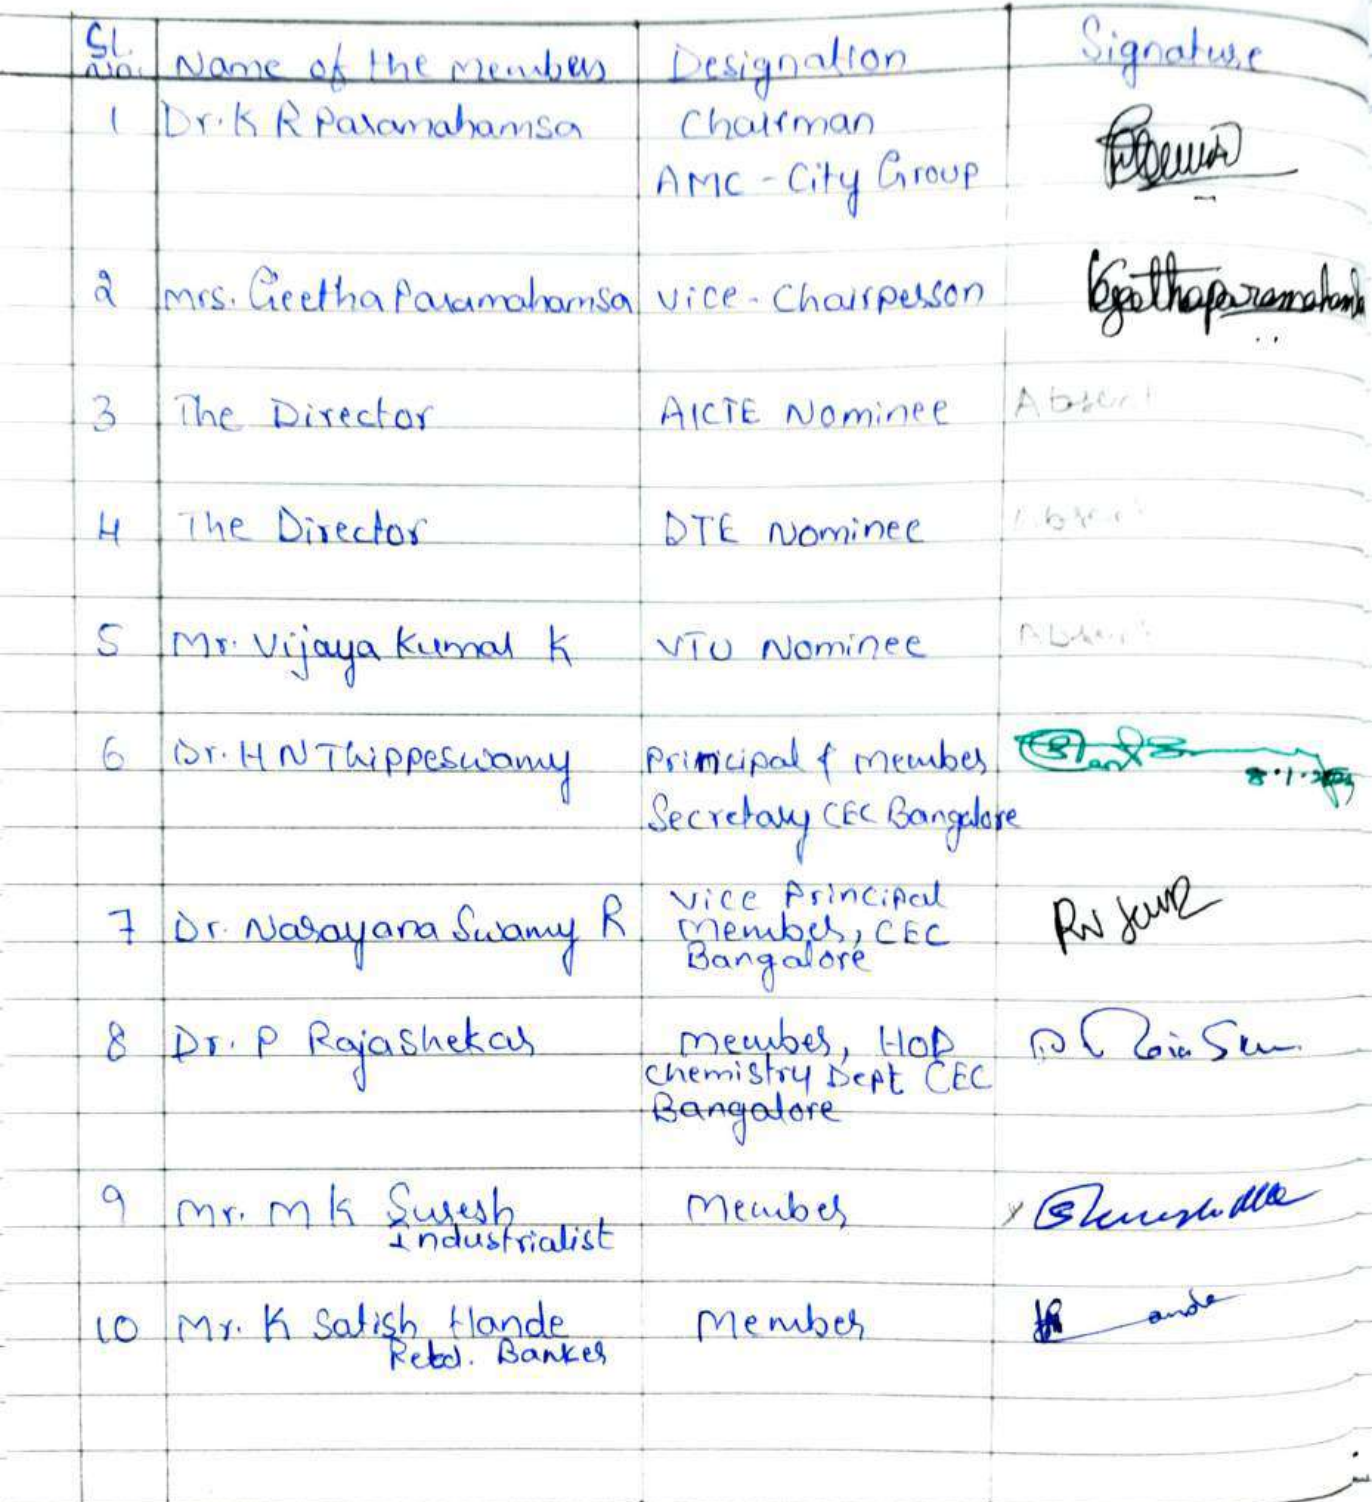 Sl. No. Name of the Members Designation Signature
1 Dr. K R Paramahamsa Chairman
AMC - City Group
2 Mrs. Geetha Paramahamsa Vice - Chairperson Geethaparamahamsa
3 The Director AICTE Nominee Absent
4 The Director DTE Nominee Absent
5 Mr. Vijaya Kumar K VTU Nominee Absent
6 Dr. H N Thippeswamy Principal & Member
8.1.2023
Secretary CEC Bangalore
7 Dr. Narayana Swamy R Vice Principal
Member, CEC
Bangalore
8 Dr. P Rajashekar Member, HOD
Chemistry Dept CEC
Bangalore
9 Mr. M K Suresh Member
Industrialist
10 Mr. K Satish Hande Member
Retd. Banker